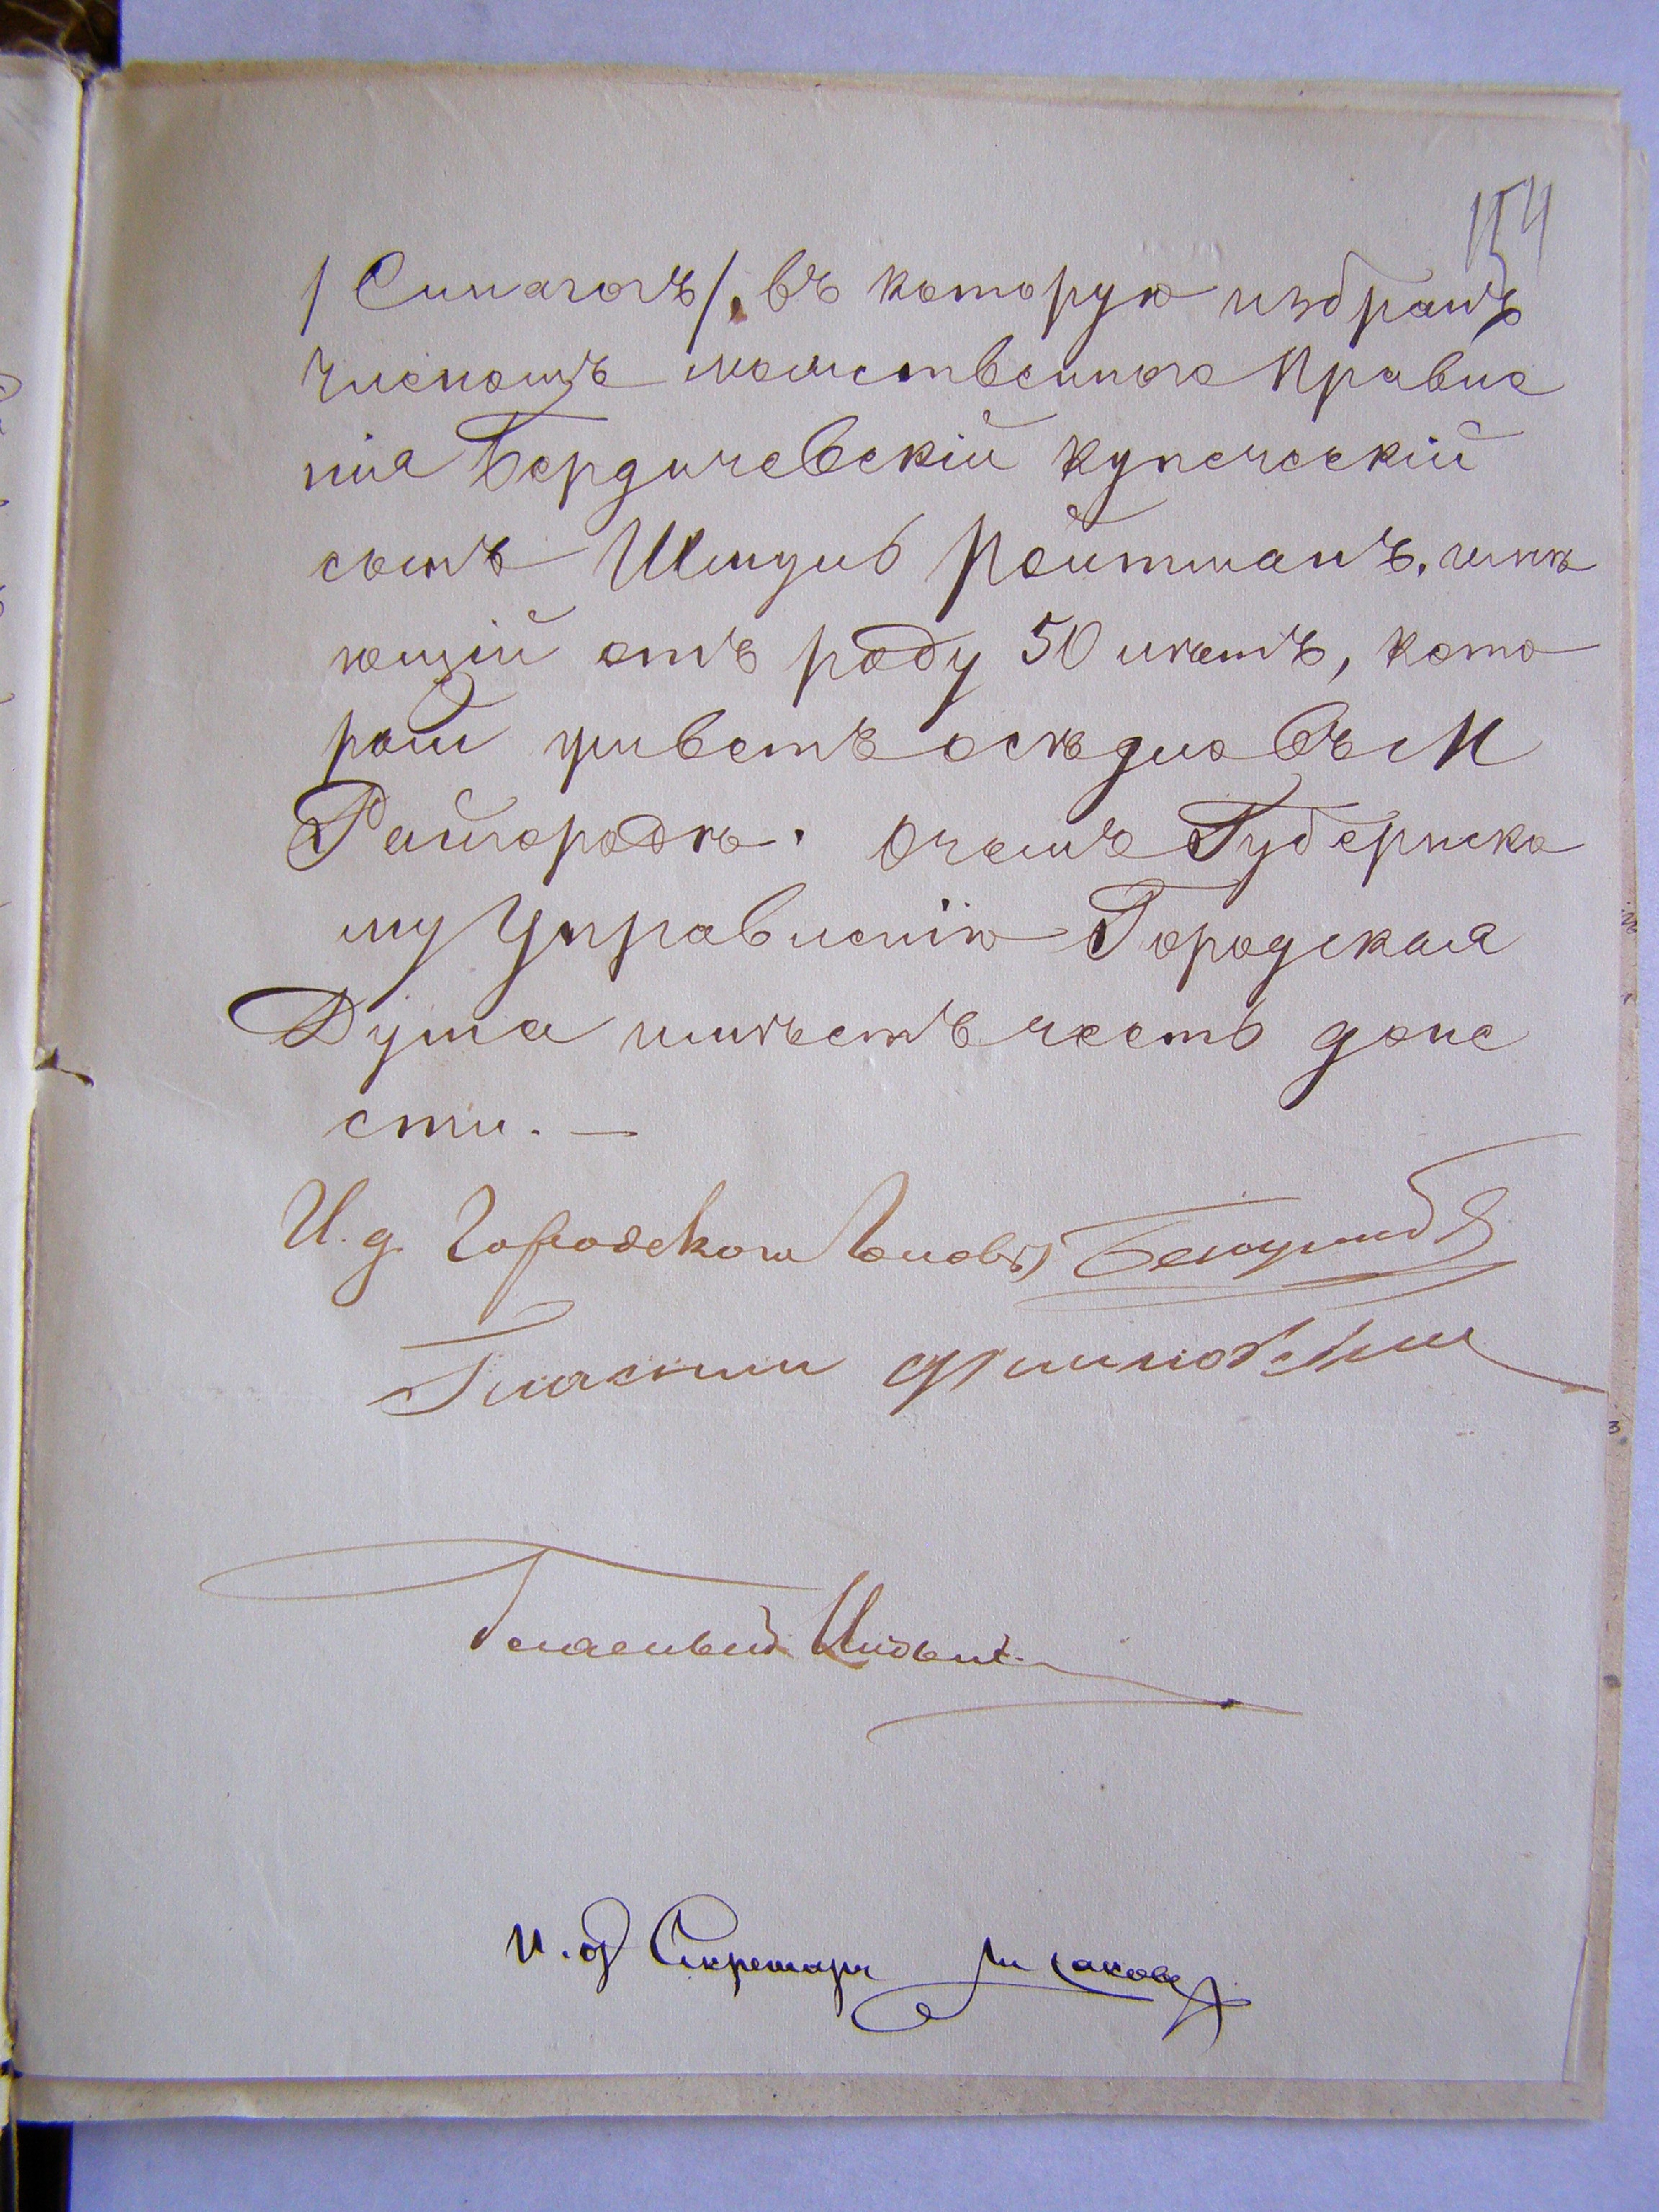 154
/Синагогъ/, въ которую избранъ
Членомъ молитвеннаго Правле
нія Бердичевскій купеческій
сынъ Шмуль Ройтманъ, имѣ
ющій отъ роду 50 лѣтъ, кото
рый живетъ осѣдло въ М
Райгородкѣ. О чемъ Губернско
му Управленію Городская
Дума имѣетъ честь доне
сти. —
И. д. Городскаго Головы
Гласный
Гласный
И. д. Секретаря